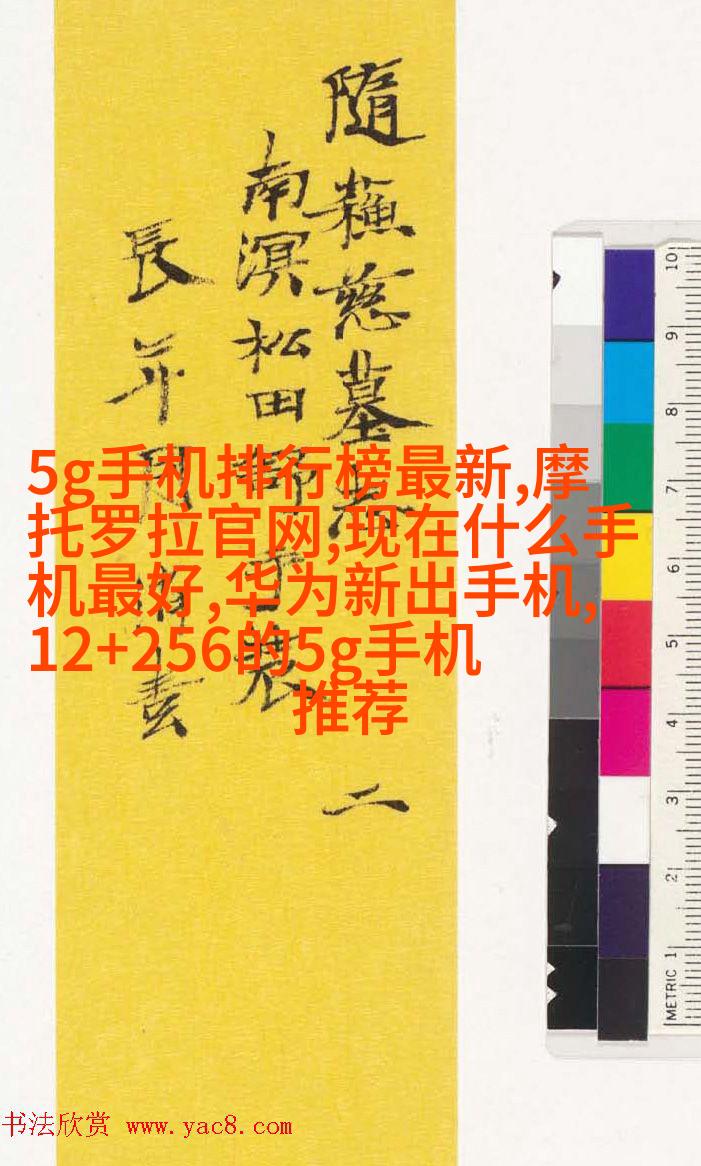 隨蘇慈墓志 二
南溟松田
長
5g手机排行榜最新,摩
托罗拉官网,现在什么手
机最好,华为新出手机,
12+256的5g手机
推荐
10
9
8
7
6
5
4
3
2
METRIC 1
书法欣赏 www.yac8.com